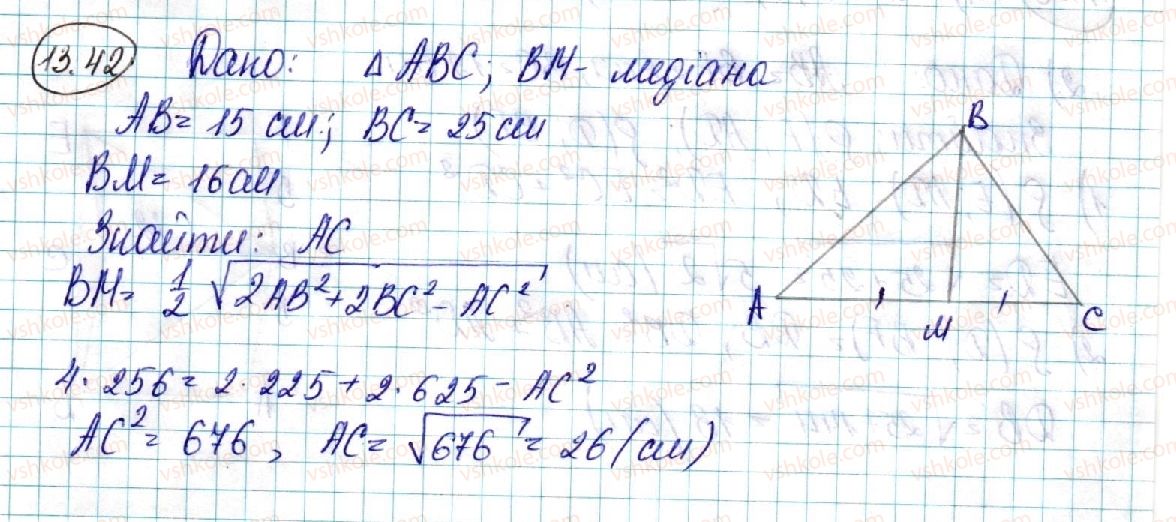 13.42 Дано: Δ ABC; BM- медіана
AB= 15 см; BC= 25 см
BM= 16 см
Знайти: AC
BM= 1/2 √(2AB²+2BC²- AC²)
4· 256= 2·225+2·625- AC²
AC²= 676, AC= √676 = 26 (см)
B
A
M
C
vshkole.com